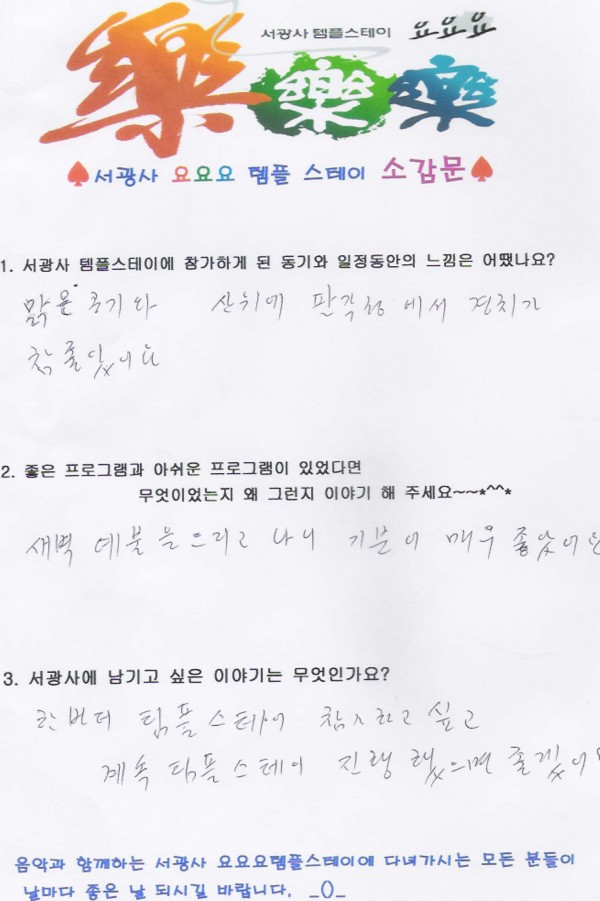 서광사 템플스테이 요요요
樂樂樂
서광사 요요요 템플 스테이 소감문
1. 서광사 템플스테이에 참가하게 된 동기와 일정동안의 느낌은 어땠나요?
맑은 공기와 산위에 팔각정 에서 경치가
참 좋았어요
2. 좋은 프로그램과 아쉬운 프로그램이 있었다면
무엇이었는지 왜 그런지 이야기 해 주세요~~*^^*
새벽 예불을 드리고 나니 기분이 매우 좋았어요
3. 서광사에 남기고 싶은 이야기는 무엇인가요?
한번더 템플스테이 참가하고 싶고
계속 템플스테이 진행 했으면 좋겠어
음악과 함께하는 서광사 요요요템플스테이에 다녀가시는 모든 분들이
날마다 좋은 날 되시길 바랍니다. _()_